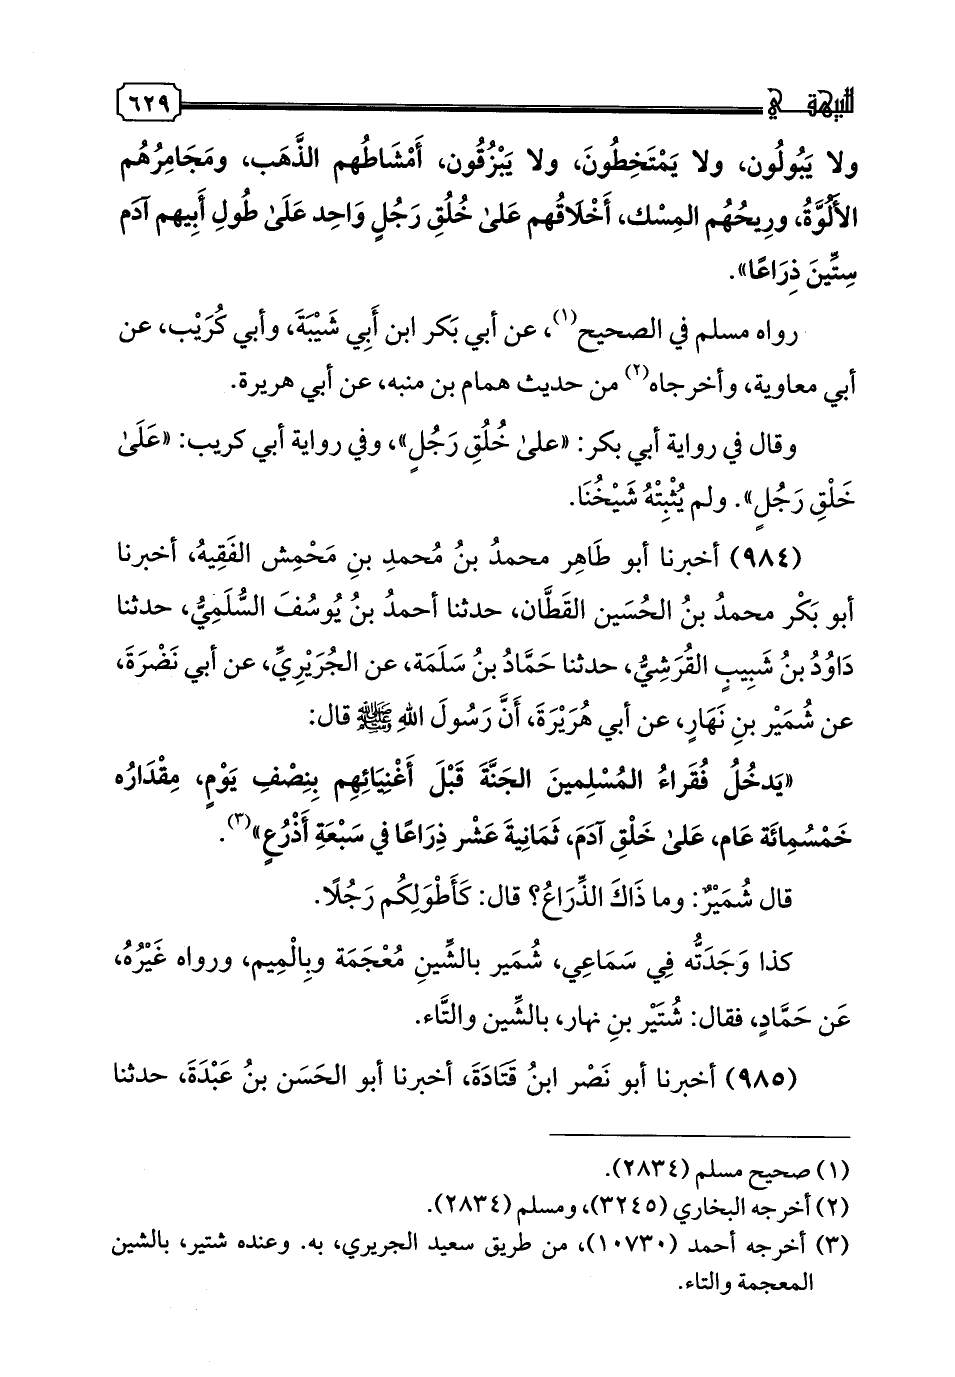 للبيهقي ٦٢٩
ولا يَبُولُون، ولا يَمْتَخِطُونَ، ولا يَبْزُقُون، أَمْشَاطُهم الذَّهَب، ومَجَامِرُهُم
الأَلُوَّةُ، ورِيحُهُم المِسْك، أَخْلَاقُهم عَلىٰ خُلُقِ رَجُلٍ وَاحِد عَلَىٰ طُولِ أَبِيهم آدَم
سِتِّينَ ذِرَاعًا».
رواه مسلم في الصحيح(١)، عن أبي بَكر ابن أَبِي شَيْبَةَ، وأبي كُرَيْب، عن
أبي معاوية، وأخرجاه(٢) من حديث همام بن منبه، عن أبي هريرة.
وقال في رواية أبي بكر: «علىٰ خُلُقِ رَجُلٍ»، وفي رواية أبي كريب: «عَلَىٰ
خَلْقِ رَجُلٍ». ولم يُثْبِتْهُ شَيْخُنَا.
(٩٨٤) أخبرنا أبو طَاهِر محمدُ بنُ مُحمدِ بنِ مَحْمِش الفَقِيهُ، أخبرنا
أبو بَكْر محمدُ بنُ الحُسَين القَطَّان، حدثنا أحمدُ بنُ يُوسُفَ السُّلَمِيُّ، حدثنا
دَاوُدُ بنُ شَبِيبٍ القُرَشِيُّ، حدثنا حَمَّادُ بنُ سَلَمَة، عن الجُرَيْرِيِّ، عن أبي نَضْرَةَ،
عن شُمَيْر بنِ نَهَارٍ، عن أبي هُرَيْرَةَ، أَنَّ رَسُولَ اللهِ ﷺ قال:
«يَدخُلُ فُقَراءُ المُسْلِمينَ الجَنَّةَ قَبْلَ أَغْنِيَائِهِم بِنِصْفِ يَوْمٍ، مِقْدَارُه
خَمْسُمِائَة عَام، عَلىٰ خَلْقِ آدَمَ، ثَمَانِيةَ عَشْر ذِرَاعًا في سَبْعَةِ أَذْرُعٍ»(٣).
قال شُمَيْرٌ: وما ذَاكَ الذِّرَاعُ؟ قال: كَأَطْوَلِكُم رَجُلًا.
كذا وَجَدَتُّه فِي سَمَاعِي، شُمَير بالشِّينِ مُعْجَمَة وبِالْمِيم، ورواه غَيْرُهُ،
عَن حَمَّادٍ، فقال: شُتَيْر بنِ نهار، بالشِّين والتَّاء.
(٩٨٥) أخبرنا أبو نَصْر ابنُ قَتَادَةَ، أخبرنا أبو الحَسَن بنُ عَبْدَةَ، حدثنا
(١) صحيح مسلم (٢٨٣٤).
(٢) أخرجه البخاري (٣٢٤٥)، ومسلم (٢٨٣٤).
(٣) أخرجه أحمد (١٠٧٣٠)، من طريق سعيد الجريري، به. وعنده شتير، بالشين
المعجمة والتاء.